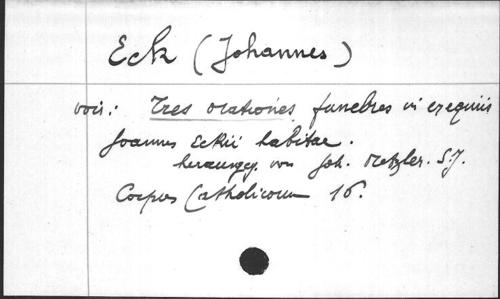 Eck (Johannes)
voir: Tres orationes funebres in exequiis
Joannis Eckii habitae.
herausgeg. von Joh. Metzler. S.J.
Corpus Catholicorum 16.